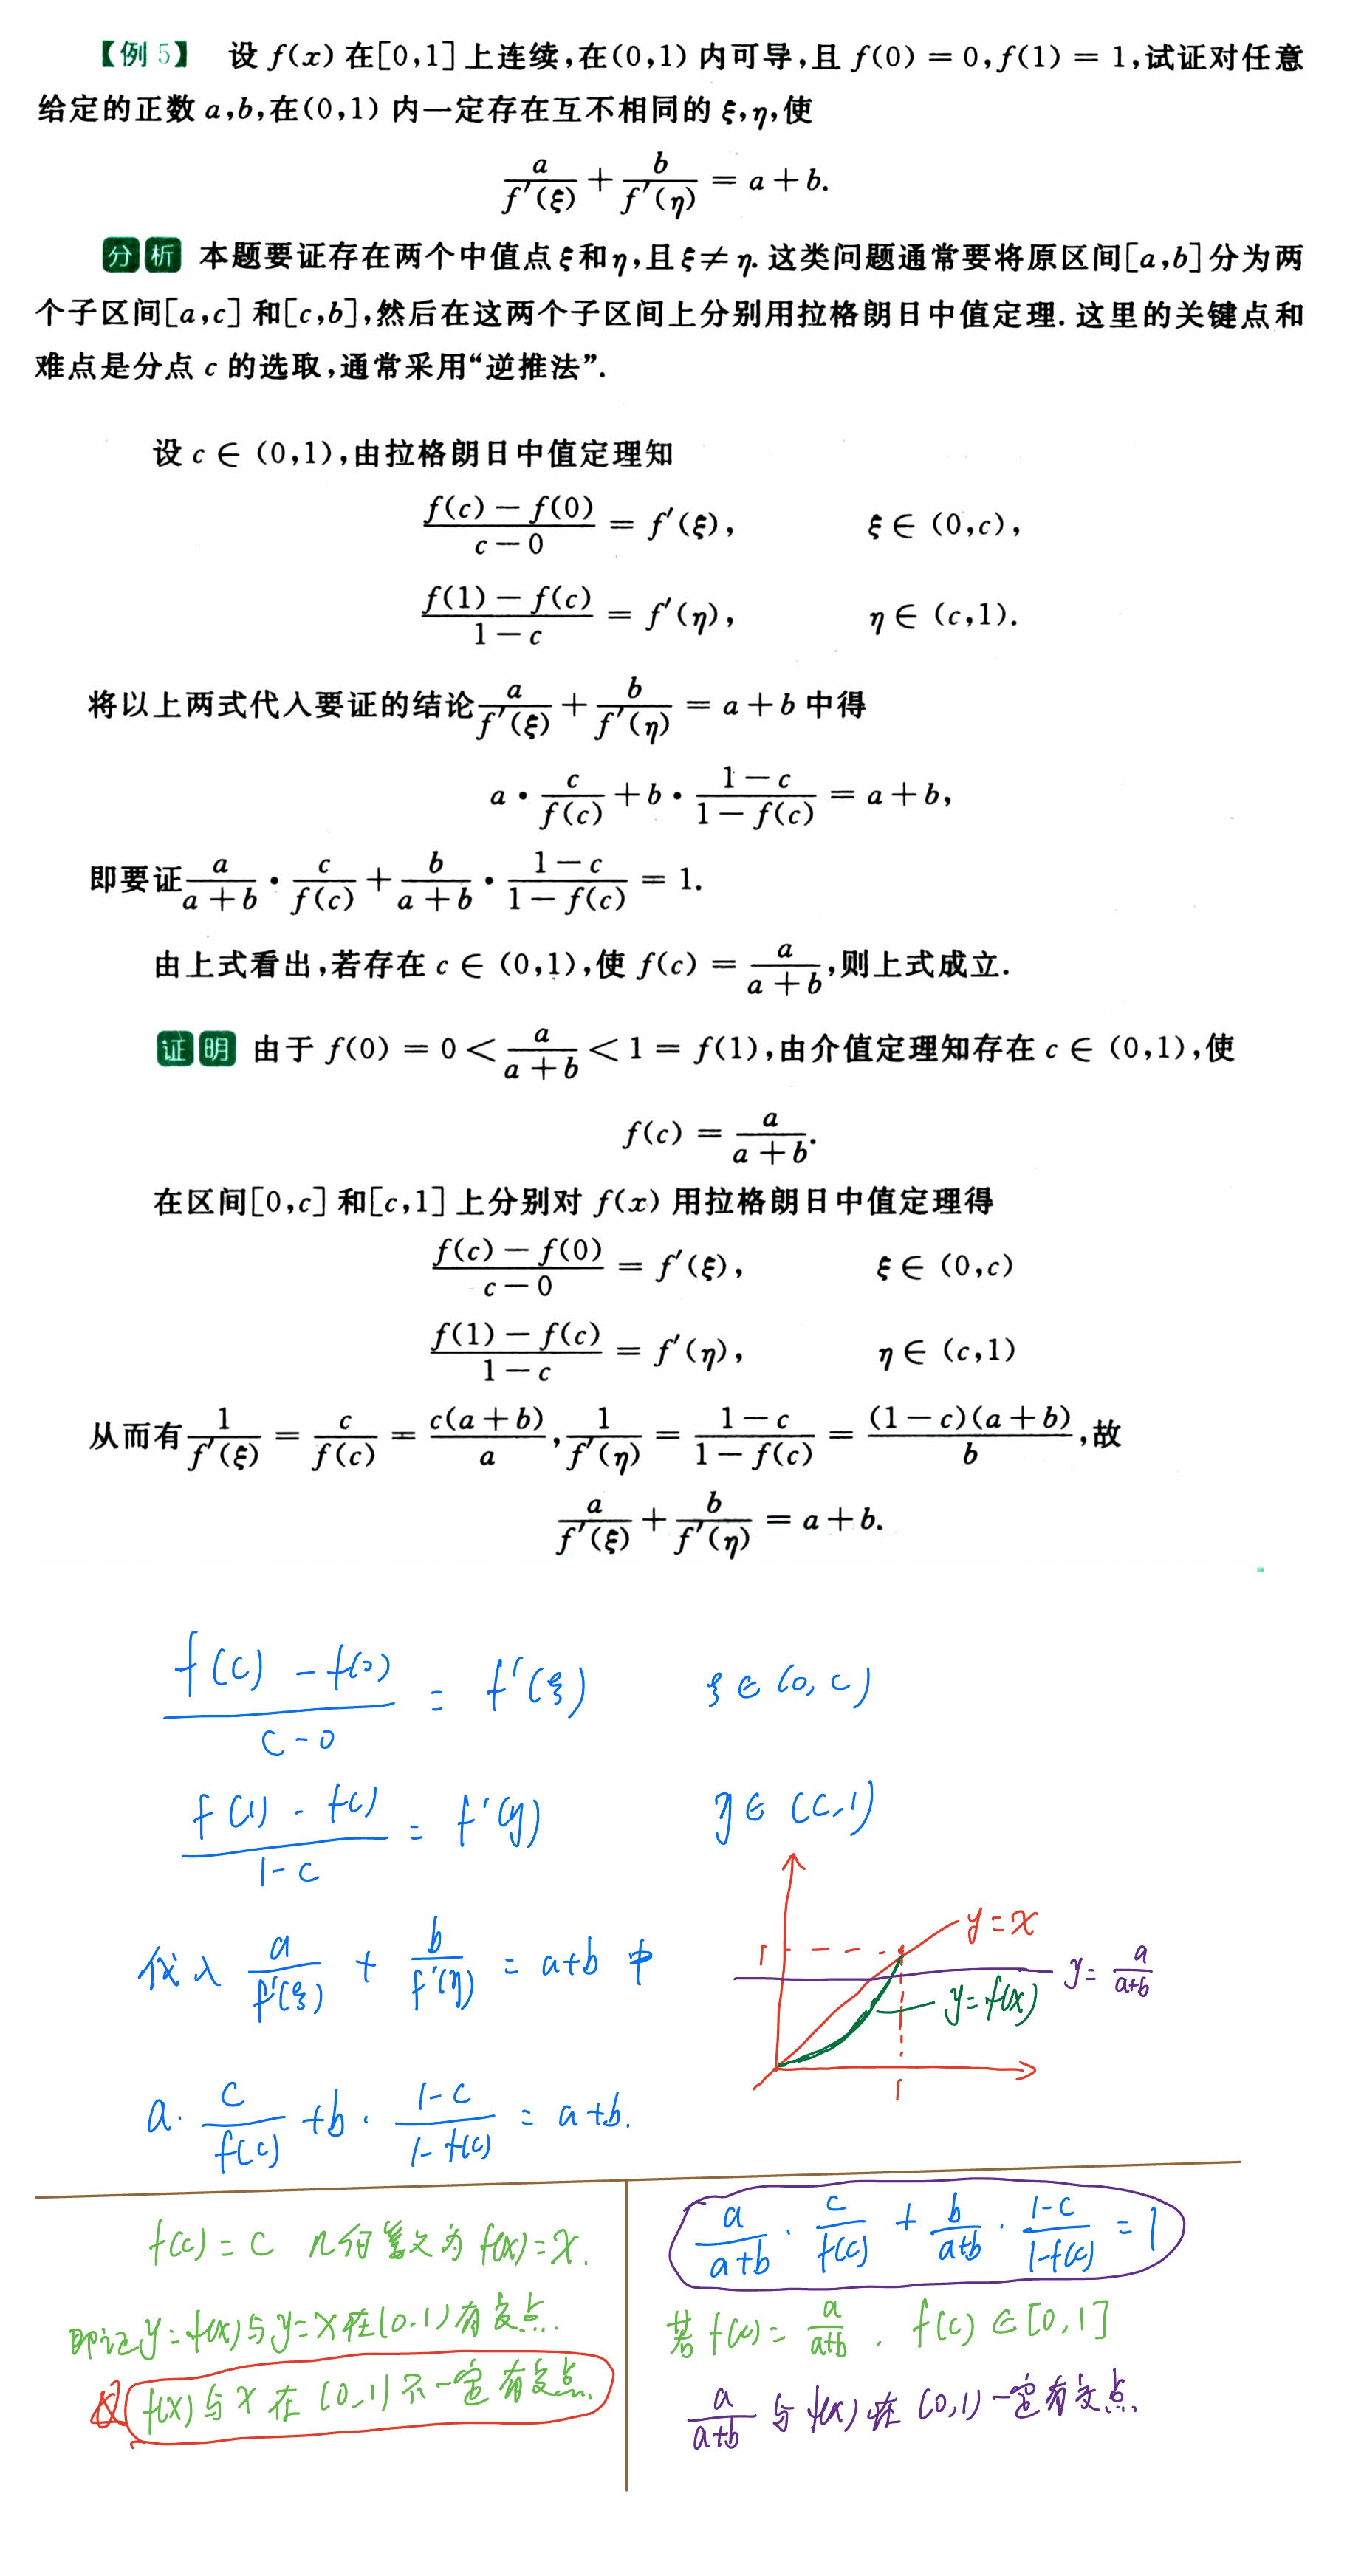 【例5】 设 f(x) 在[0,1]上连续,在(0,1)内可导,且 f(0) = 0,f(1) = 1,试证对任意
给定的正数 a,b,在(0,1)内一定存在互不相同的 ξ,η,使
a/f′(ξ) + b/f′(η) = a + b.
分析 本题要证存在两个中值点 ξ 和 η,且 ξ ≠ η. 这类问题通常要将原区间[a,b]分为两
个子区间[a,c]和[c,b],然后在这两个子区间上分别用拉格朗日中值定理. 这里的关键点和
难点是分点 c 的选取,通常采用“逆推法”.
设 c ∈ (0,1),由拉格朗日中值定理知
(f(c) − f(0))/(c − 0) = f′(ξ), ξ ∈ (0,c),
(f(1) − f(c))/(1 − c) = f′(η), η ∈ (c,1).
将以上两式代入要证的结论 a/f′(ξ) + b/f′(η) = a + b 中得
a · c/f(c) + b · (1 − c)/(1 − f(c)) = a + b,
即要证 a/(a + b) · c/f(c) + b/(a + b) · (1 − c)/(1 − f(c)) = 1.
由上式看出,若存在 c ∈ (0,1),使 f(c) = a/(a + b),则上式成立.
证明 由于 f(0) = 0 < a/(a + b) < 1 = f(1),由介值定理知存在 c ∈ (0,1),使
f(c) = a/(a + b).
在区间[0,c]和[c,1]上分别对 f(x) 用拉格朗日中值定理得
(f(c) − f(0))/(c − 0) = f′(ξ), ξ ∈ (0,c)
(f(1) − f(c))/(1 − c) = f′(η), η ∈ (c,1)
从而有 1/f′(ξ) = c/f(c) = c(a + b)/a, 1/f′(η) = (1 − c)/(1 − f(c)) = (1 − c)(a + b)/b,故
a/f′(ξ) + b/f′(η) = a + b.
(f(c) − f(0))/(c − 0) = f′(ξ) ξ ∈ (0, c)
(f(1) − f(c))/(1 − c) = f′(η) η ∈ (c,1)
代入 a/f′(ξ) + b/f′(η) = a+b 中
y = x
1
y = a/(a+b)
y = f(x)
1
a · c/f(c) + b · (1−c)/(1−f(c)) = a+b.
f(c) = c 几何意义为 f(x) = x.
即证 y = f(x) 与 y = x 在 (0,1) 有交点.
f(x) 与 x 在 (0,1) 不一定有交点.
a/(a+b) · c/f(c) + b/(a+b) · (1−c)/(1−f(c)) = 1
若 f(c) = a/(a+b) , f(c) ∈ [0,1]
a/(a+b) 与 f(x) 在 (0,1) 一定有交点.